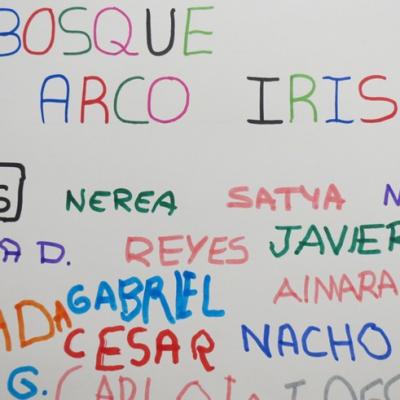 BOSQUE
ARCO IRIS
S NEREA SATYA N
A D. REYES JAVIER
GABRIEL AINARA
ADA CESAR NACHO
G.